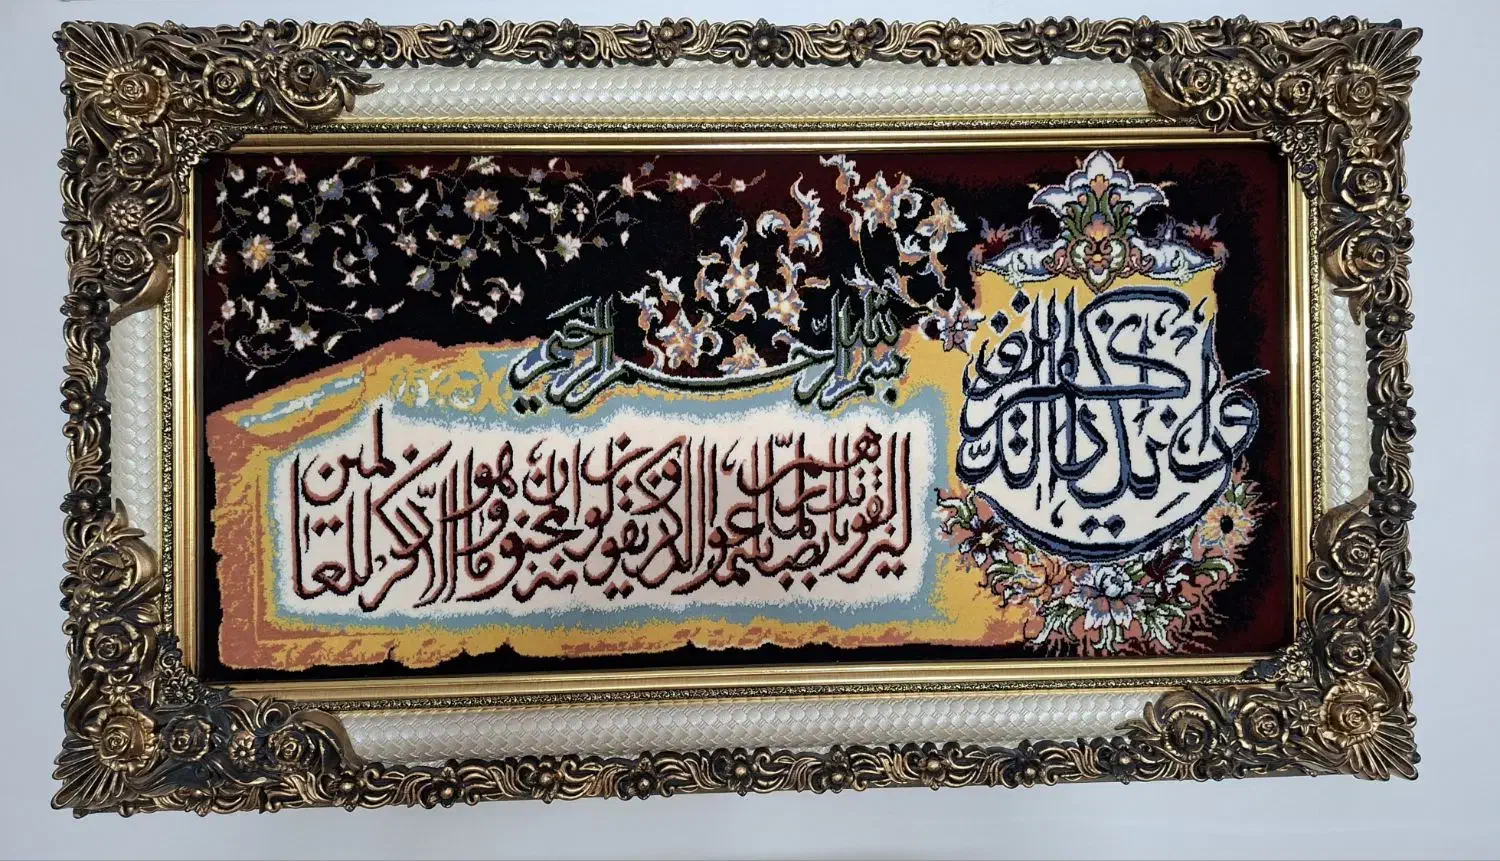 بسم الله الرحمن الرحيم
وان يكاد الذين كفروا
ليزلقونك بابصارهم لما سمعوا الذكر و يقولون انه لمجنون وما هو الا ذكر للعالمين